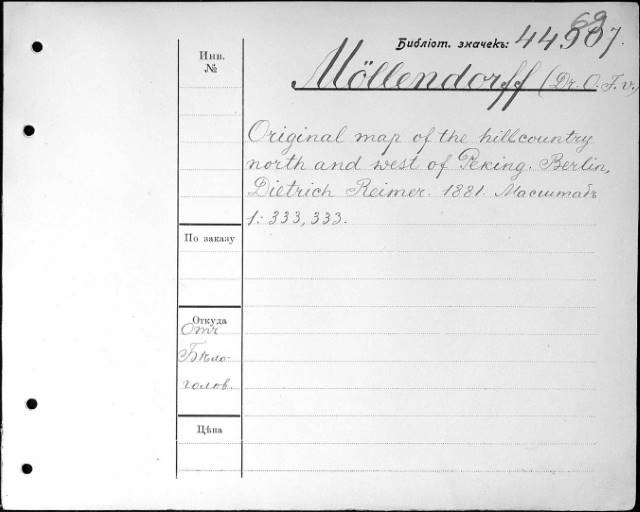 Библіот. значекъ: 44907.
69
Инв.
№
Möllendorff (Dr. O. F. v.)
Original map of the hillcountry
north and west of Peking. Berlin,
Dietrich Reimer. 1881. Масштабъ
1: 333,333.
По заказу
Откуда
Отъ
Бѣло-
голов.
Цѣна